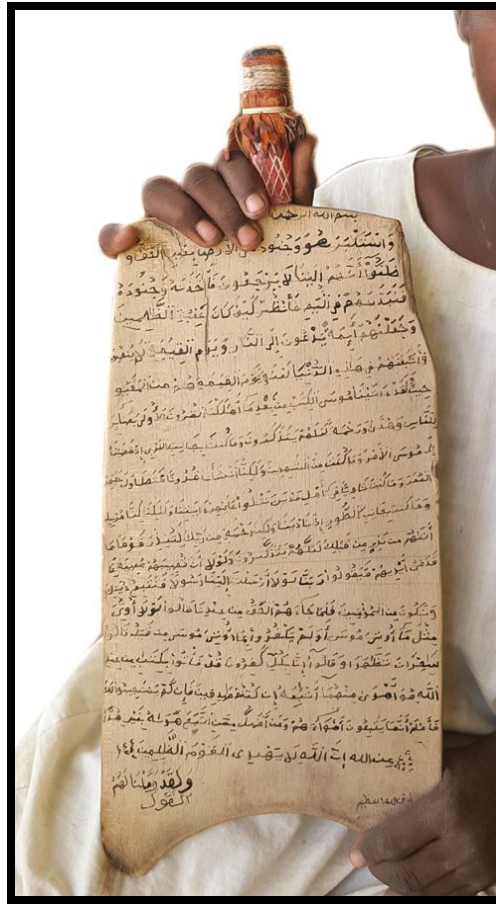 بسم الله الرحمن
وَاسْتَكْبَرَ هُوَ وَجُنُودُهُ فِي الارْضِ بِغَيْرِ الْحَقِّ وَ
ظَنُّوا أَنَّهُمْ إِلَيْنَا لَا يُرْجَعُونَ فَأَخَذْنَهُ وَجُنُودَهُ
فَنَبَذْنَهُمْ فِي الْيَمِّ فَانْظُرْ كَيْفَ كَانَ عَقِبَةُ الظَّلِمِينَ
وَجَعَلْنَهُمْ أَيِمَّةً يَدْعُونَ إِلَى النَّارِ وَيَوْمَ الْقِيَمَةِ لَا يُنْصَرُونَ
وَأَتْبَعْنَهُمْ فِي هَذِهِ الدُّنْيَا لَعْنَةً وَيَوْمَ الْقِيَمَةِ هُمْ مِنَ الْمَقْبُو
حِينَ وَلَقَدْ ءَاتَيْنَا مُوسَى الْكِتَبَ مِنْ بَعْدِ مَا أَهْلَكْنَا الْقُرُونَ الْأُولَى بَصَائِرَ
لِلنَّاسِ وَهُدًى وَرَحْمَةً لَعَلَّهُمْ يَتَذَكَّرُونَ وَمَا كُنْتَ بِجَانِبِ الْغَرْبِيِّ إِذْ قَضَيْنَا
إِلَى مُوسَى الْأَمْرَ وَمَا كُنْتَ مِنَ الشَّهِدِينَ وَلَكِنَّا أَنْشَأْنَا قُرُونًا فَتَطَاوَلَ عَلَيْهِمُ
الْعُمُرُ وَمَا كُنْتَ ثَاوِيًا فِي أَهْلِ مَدْيَنَ تَتْلُوا عَلَيْهِمْ ءَايَتِنَا وَلَكِنَّا كُنَّا مُرْسِلِينَ
وَمَا كُنْتَ بِجَانِبِ الطُّورِ إِذْ نَادَيْنَا وَلَكِنْ رَحْمَةً مِنْ رَبِّكَ لِتُنْذِرَ قَوْمًا مَا
أَتَيهُمْ مِنْ نَذِيرٍ مِنْ قَبْلِكَ لَعَلَّهُمْ يَتَذَكَّرُونَ وَلَوْلَا أَنْ تُصِيبَهُمْ مُصِيبَةٌ بِمَا
قَدَّمَتْ أَيْدِيهِمْ فَيَقُولُوا رَبَّنَا لَوْلَا أَرْسَلْتَ إِلَيْنَا رَسُولًا فَنَتَّبِعَ ءَايَتِكَ
وَنَكُونَ مِنَ الْمُؤْمِنِينَ فَلَمَّا جَاءَهُمُ الْحَقُّ مِنْ عِنْدِنَا قَالُوا لَوْلَا أُوتِيَ
مِثْلَ مَا أُوتِيَ مُوسَى أَوَلَمْ يَكْفُرُوا بِمَا أُوتِيَ مُوسَى مِنْ قَبْلُ قَالُوا
سَحِرَانِ تَظَهَرَا وَقَالُوا إِنَّا بِكُلٍّ كَفِرُونَ قُلْ فَأْتُوا بِكِتَبٍ مِنْ عِنْدِ
اللَّهِ هُوَ أَهْدَى مِنْهُمَا أَتَّبِعْهُ إِنْ كُنْتُمْ صَدِقِينَ فَإِنْ لَمْ يَسْتَجِيبُوا لَكَ
فَاعْلَمْ أَنَّمَا يَتَّبِعُونَ أَهْوَاءَهُمْ وَمَنْ أَضَلُّ مِمَّنِ اتَّبَعَ هَوَيهُ بِغَيْرِ هُدًى
مِنَ الله إِنَّ اللَّهَ لَا يَهْدِي الْقَوْمَ الظَّلِمِينَ
وَلَقَدْ وَصَّلْنَا لَهُمُ
الْقَوْلَ